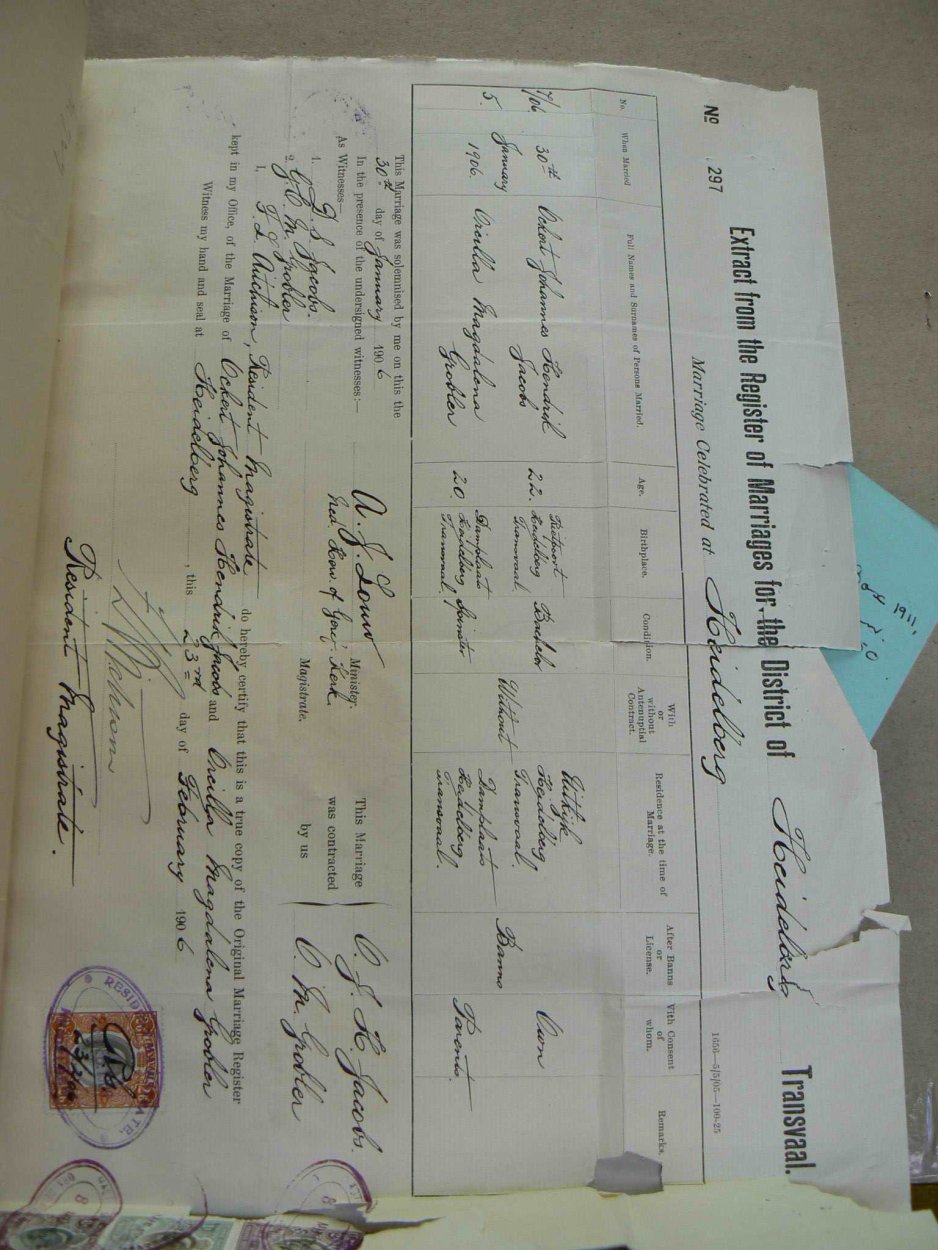 Extract from the Register of Marriages for the District of Heidelberg Transvaal.
No 297
Marriage Celebrated at Heidelberg
1656—5/5/05—100-25
No. When Married Full Names and Surnames of Persons Married. Age. Birthplace. Condition. With or without Antenuptial Contract. Residence at the time of Marriage. After Banns or License. With Consent of whom. Remarks.
7/06. 30th Ockert Johannes Hendrik Jacobs 22. Rietpoort Heidelberg Transvaal Bachelor Uitkijk Heidelberg Transvaal. Own
5. January 1906. Orcilla Magdalena Grobler 20. Damplaats Heidelberg Transvaal Spinster Without Damplaats Heidelberg Transvaal. Banns Parents.
This Marriage was solemnised by me on this the
30th day of January 1906
In the presence of the undersigned witnesses:—
As Witnesses—
1. J. S. Jacobs.
2. G. C. M. Grobler
A. J. Louw Minister.
Ned. Herv. of Geref. Kerk
Magistrate.
This Marriage was contracted by us
O. J. H. Jacobs.
O. M. Grobler
I, F. L. Aitchison, Resident Magistrate do hereby certify that this is a true copy of the Original Marriage Register
kept in my Office, of the Marriage of Ockert Johannes Hendrik Jacobs and Orcilla Magdalena Grobler
Witness my hand and seal at Heidelberg, this 23rd day of February 1906
Resident Magistrate.
23/2/06
1911,